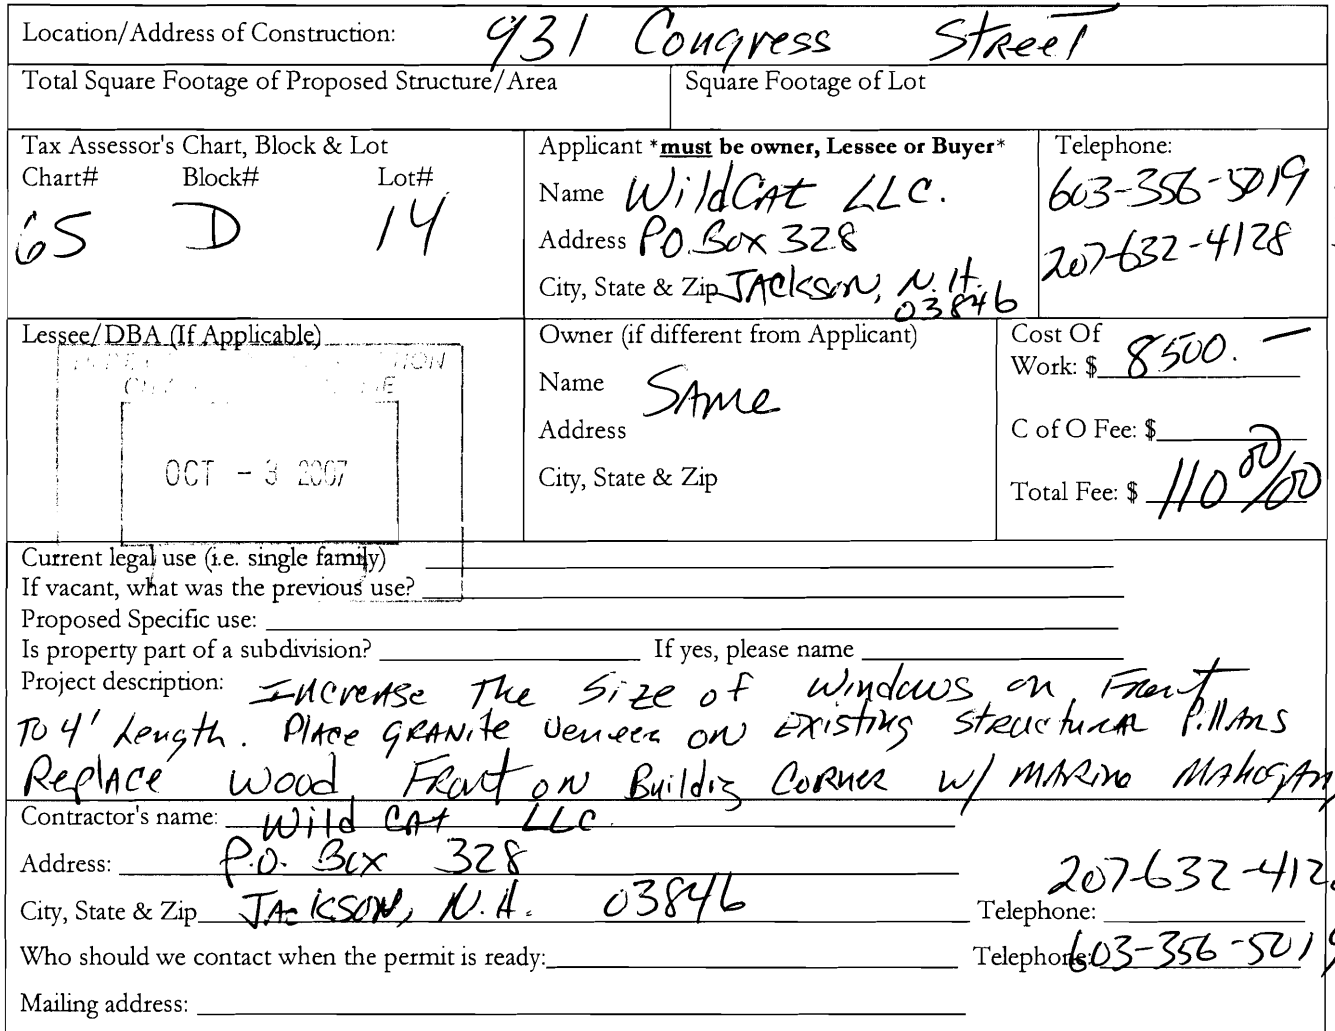 Location/Address of Construction: 931 Congress Street
Total Square Footage of Proposed Structure/Area Square Footage of Lot
Tax Assessor's Chart, Block & Lot
Chart# Block# Lot#
65 D 14
Applicant *must be owner, Lessee or Buyer*
Name WildCat LLC.
Address P.O. Box 328
City, State & Zip Jackson, N.H.
03846
Telephone:
603-356-5019
207-632-4128
Lessee/DBA (If Applicable)
OCT - 3 2007
Owner (if different from Applicant)
Name Same
Address
City, State & Zip
Cost Of
Work: $ 8500. —
C of O Fee: $
Total Fee: $ 110 00/00
Current legal use (i.e. single family)
If vacant, what was the previous use?
Proposed Specific use:
Is property part of a subdivision? If yes, please name
Project description: Increase The Size of Windows on Front
To 4' Length. Place GRANite Veneer on Existing Structural Pillars
Replace Wood Front on Buildig Corner w/ MARINE MAHOGANy
Contractor's name: Wild Cat LLC.
Address: P.O. Box 328
City, State & Zip Jackson, N.H. 03846 Telephone: 207-632-412
Who should we contact when the permit is ready: Telephone: 603-356-5019
Mailing address: